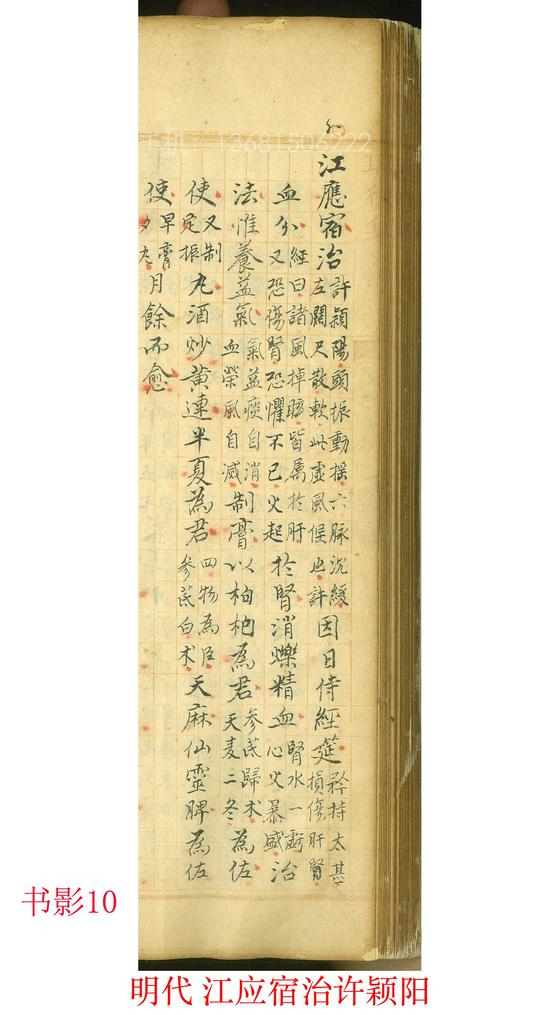 手机：13681506222
江應宿治許頴陽頭振動揺六脉沉緩左關尺散軟此虚風候也許因日侍經筵矜持太甚損傷肝腎
血分經曰諸風掉眩皆属於肝又恐傷腎恐懼不已火起於腎消爍精血腎水一虧心火暴盛治
法惟養益氣氣益痰自消血榮風自滅制膏以枸杞為君參芪歸术天麦二冬為佐
使又制定振丸酒炒黄連半夏為君四物為臣參芪白术天麻仙靈脾為佐
使早膏夕丸月餘而愈
书影10
明代 江应宿治许颖阳